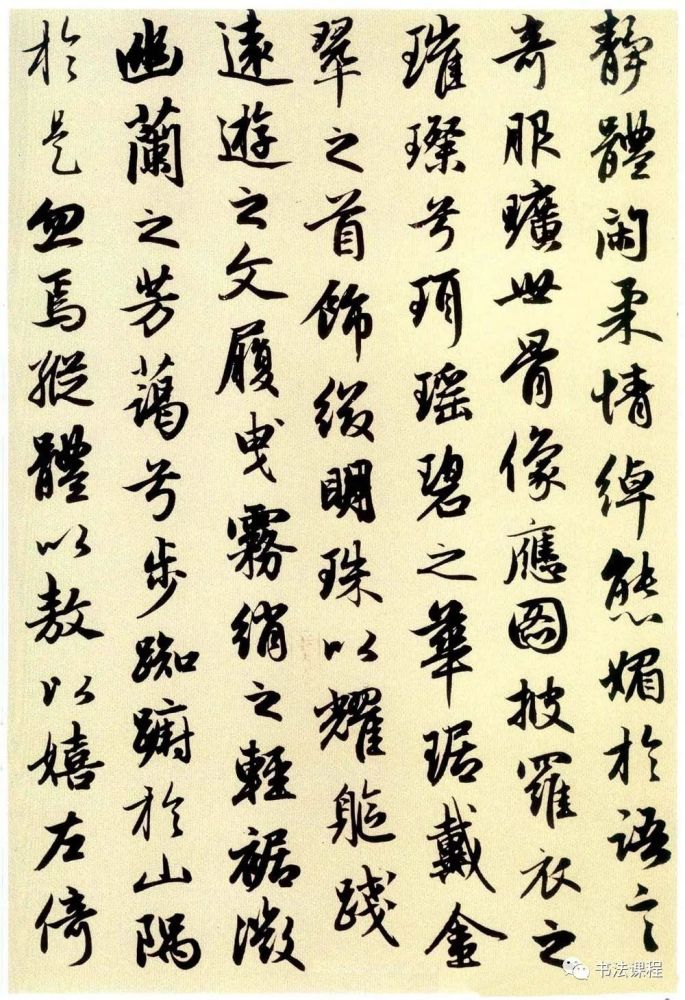 靜體閑柔情綽態媚於語言
奇服曠世骨像應圖披羅衣之
璀璨兮珥瑶碧之華琚戴金
翠之首飾綴明珠以耀軀踐
遠遊之文履曳霧綃之輕裾微
幽蘭之芳藹兮步踟躕於山隅
於是忽焉縱體以敖以嬉左倚
书法课程